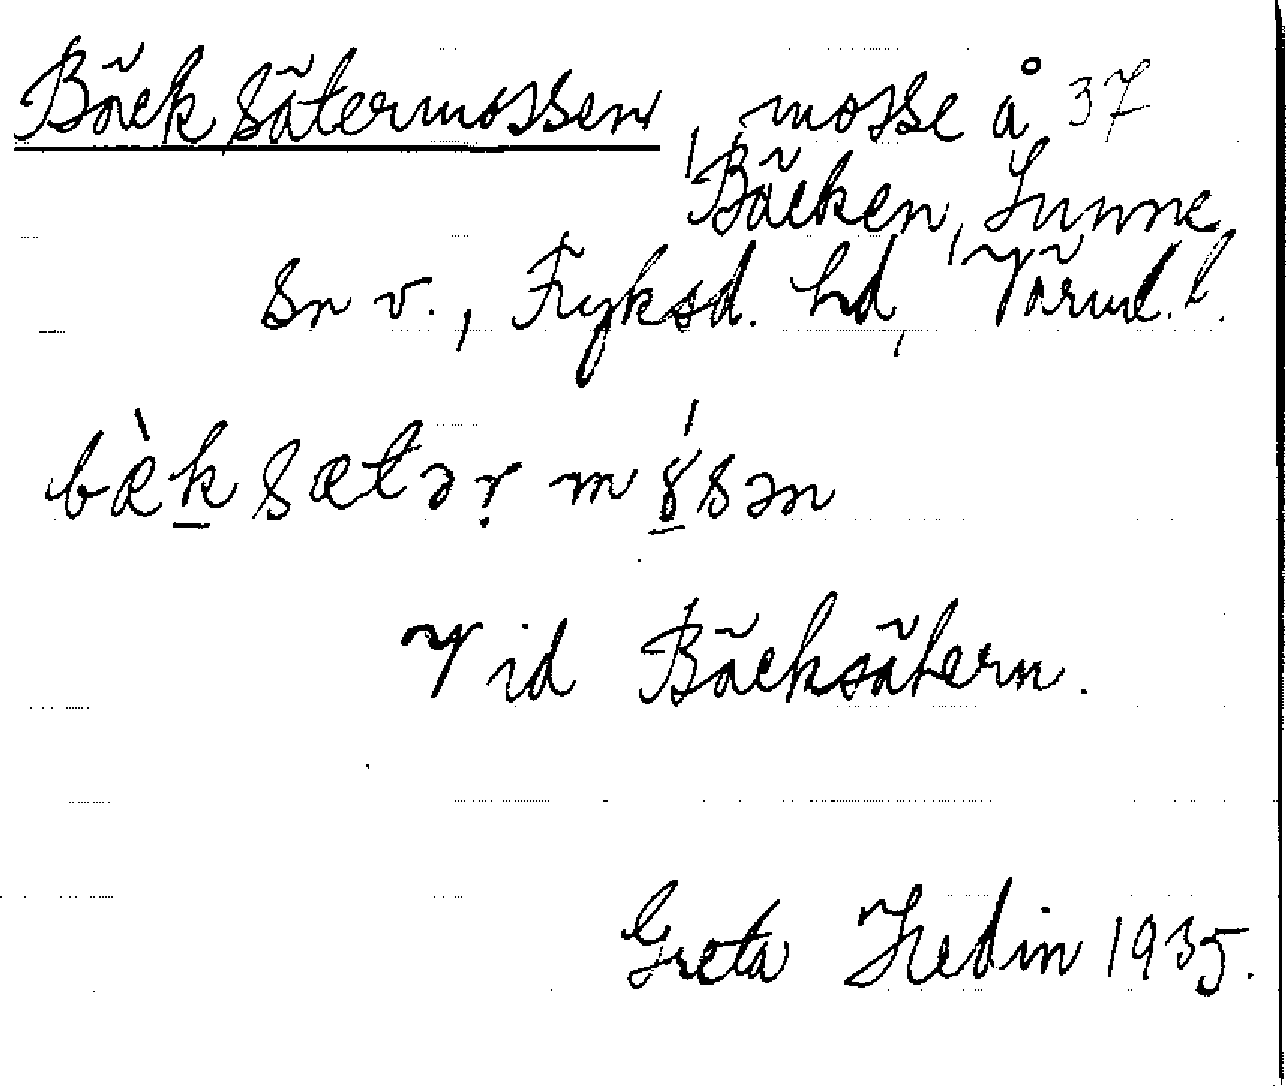 Bäcksätermossen, mosse å 37
Bäcken, Sunne
sn v., Fryksd. hd, Värml. l.
bæ̀k̠sætəṛ mɤ̠́sən
Vid Bäcksätern.
Greta Hedin 1935.